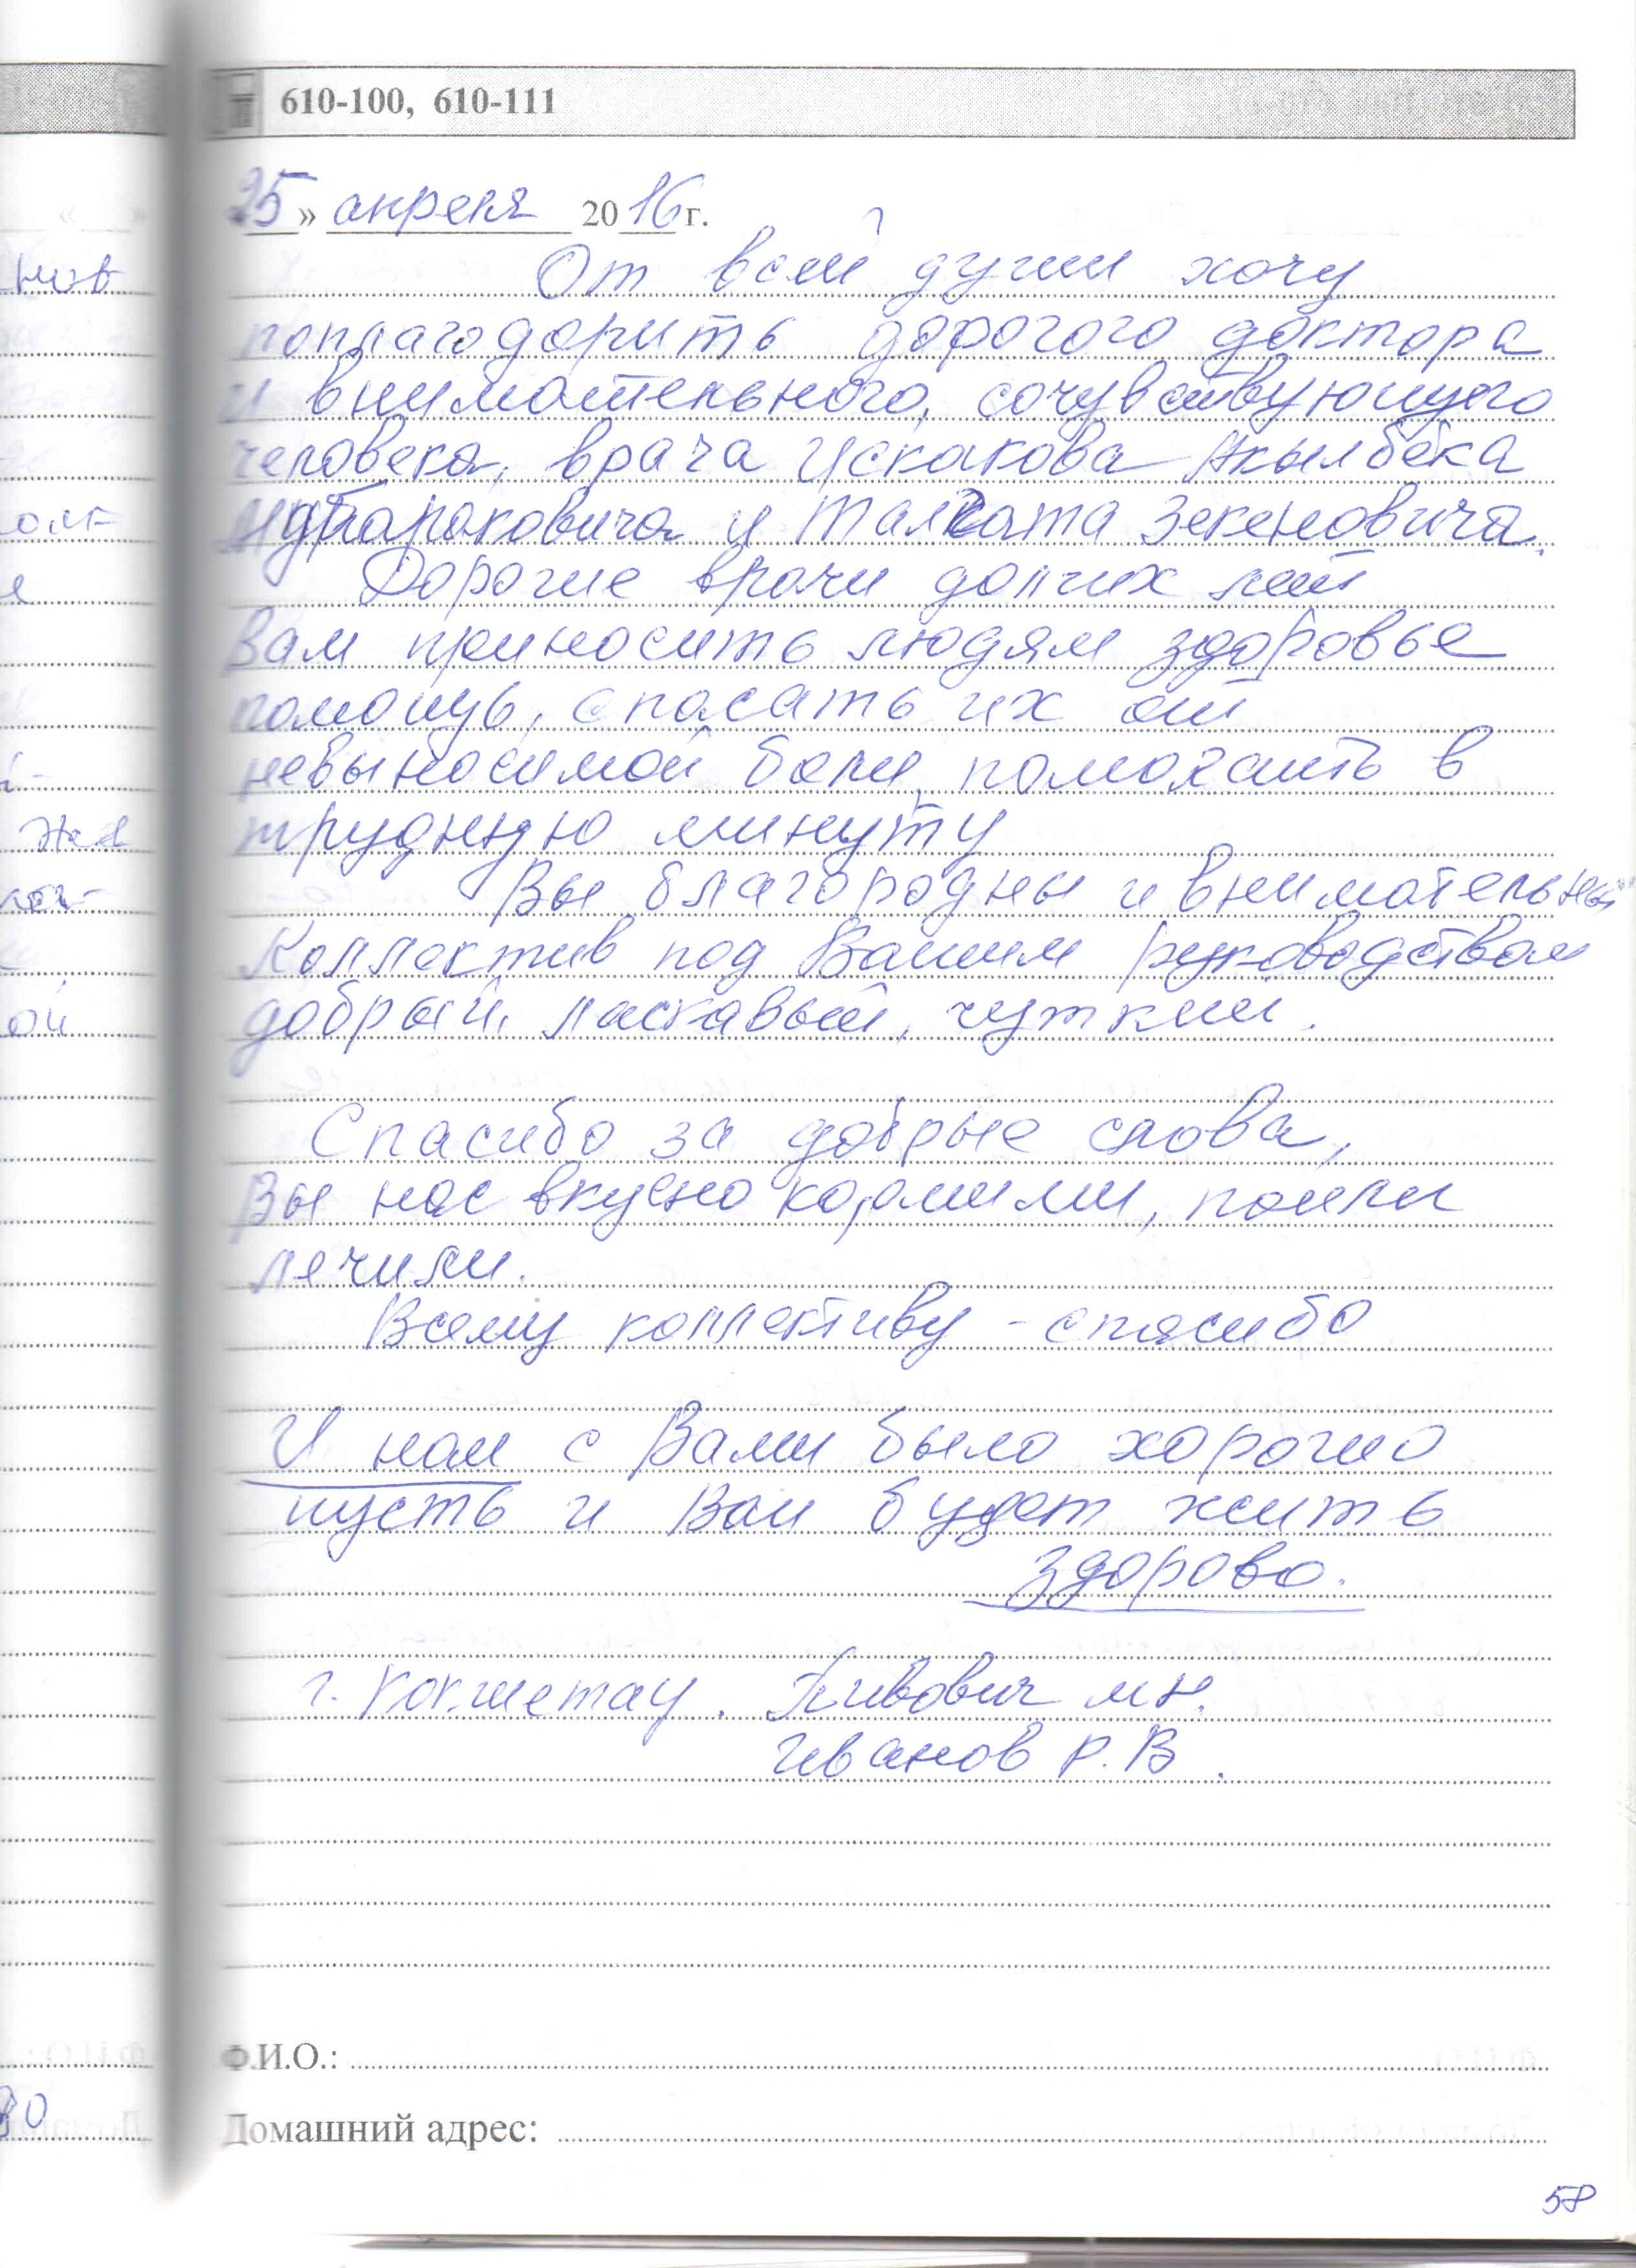 610-100, 610-111
25» апреля 2016 г.
От всей души хочу
поплагодорить дорогого доктора
и внимательного, сочувствующего
человека, врача Искакова Акылбека
Мубараковича и Талгата Зекеновича.
Дорогие врачи долгих лет
Вам приносить людям здоровье
помощь, спасать их от
невыносимой боли, помогать в
трудную минуту
Вы благородны и внимательны
Коллектив под Вашим руководством
добрый, ласкавый, чуткий.
Спасибо за добрые слова,
Вы нас вкусно кормили, поили
лечили.
Всему коллективу - спасибо
И нам с Вами было хорошо
пусть и Вам будет жить
здорово.
г. Кокшетау. Пивович М.Н.
Иванов Р.В.
Ф.И.О.:
Домашний адрес:
58